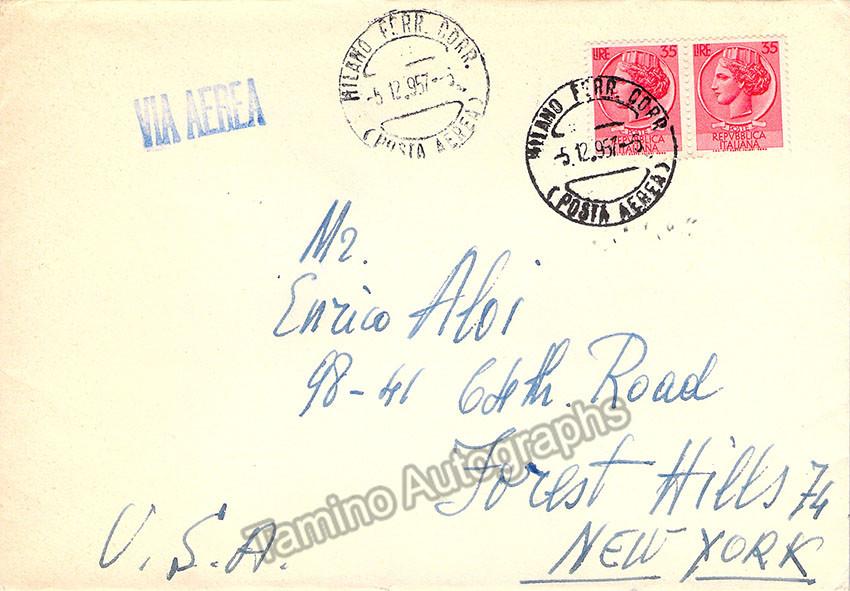 VIA AEREA
MILANO FERR. CORR.
-5.12.957-
(POSTA AEREA)
LIRE 35
POSTE
REPVBBLICA
ITALIANA
LIRE 35
POSTE
REPVBBLICA
ITALIANA
MILANO FERR. CORR.
-5.12.957-
(POSTA AEREA)
Mr.
Enrico Aloi
98-41 64th. Road
Forest Hills 74
NEW YORK
U.S.A.
Tamino Autographs